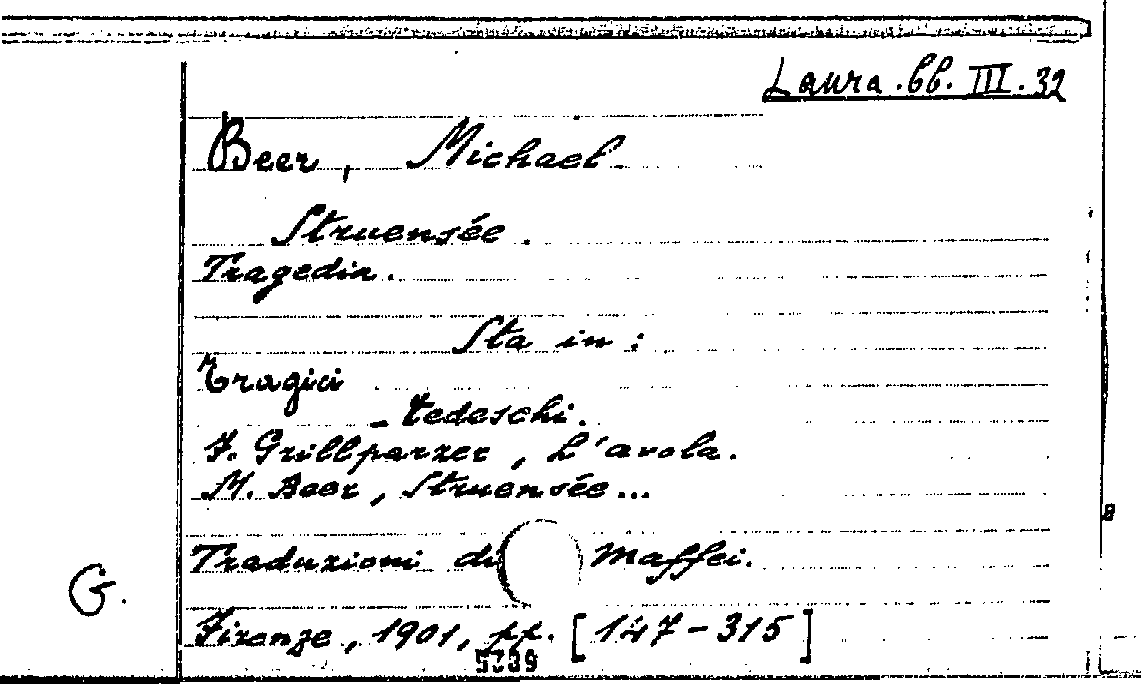 Laura.bb.III.32
Beer, Michael
Struensée.
Tragedia.
Sta in:
Tragici
- tedeschi.
F. Grillparzer, L'avola.
M. Beer, Struensée...
Traduzioni di Maffei.
G.
Firenze, 1901, pp. [147-315]